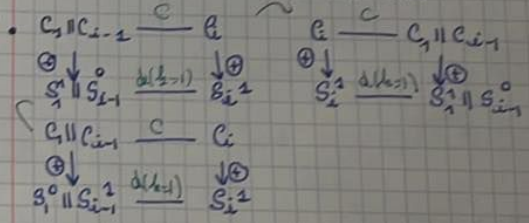 • C₁ || Cᵢ₋₁ —C— Cᵢ ~ Cᵢ —C— C₁ || Cᵢ₋₁
⊕↓ ↓⊕ ⊕↓ ↓⊕
S₁¹ || Sᵢ₋₁⁰ Sᵢ¹ Sᵢ¹ S₁¹ || Sᵢ₋₁⁰
C₁ || Cᵢ₋₁ —C— Cᵢ
⊕↓ ↓⊕
S₁⁰ || Sᵢ₋₁¹ Sᵢ¹